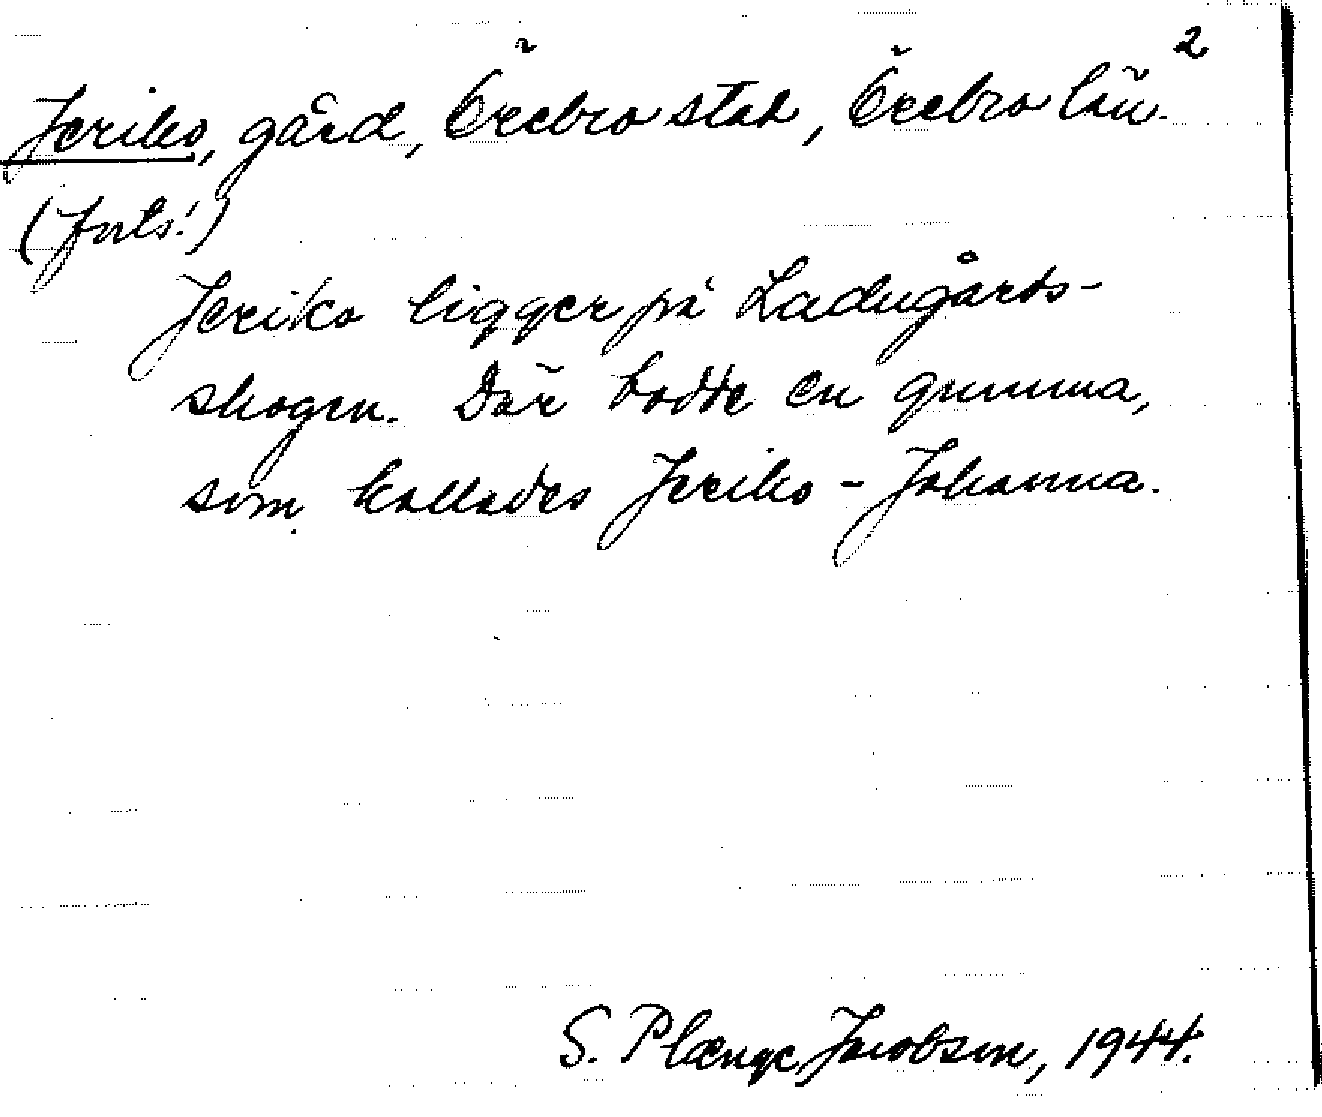 2
Jeriko, gård, Örebro stad, Örebro län.
(forts.)
Jeriko ligger på Ladugårds-
skogen. Där bodde en gumma,
som kallades Jeriko-Johanna.
S. Plænge Jacobson, 1944.